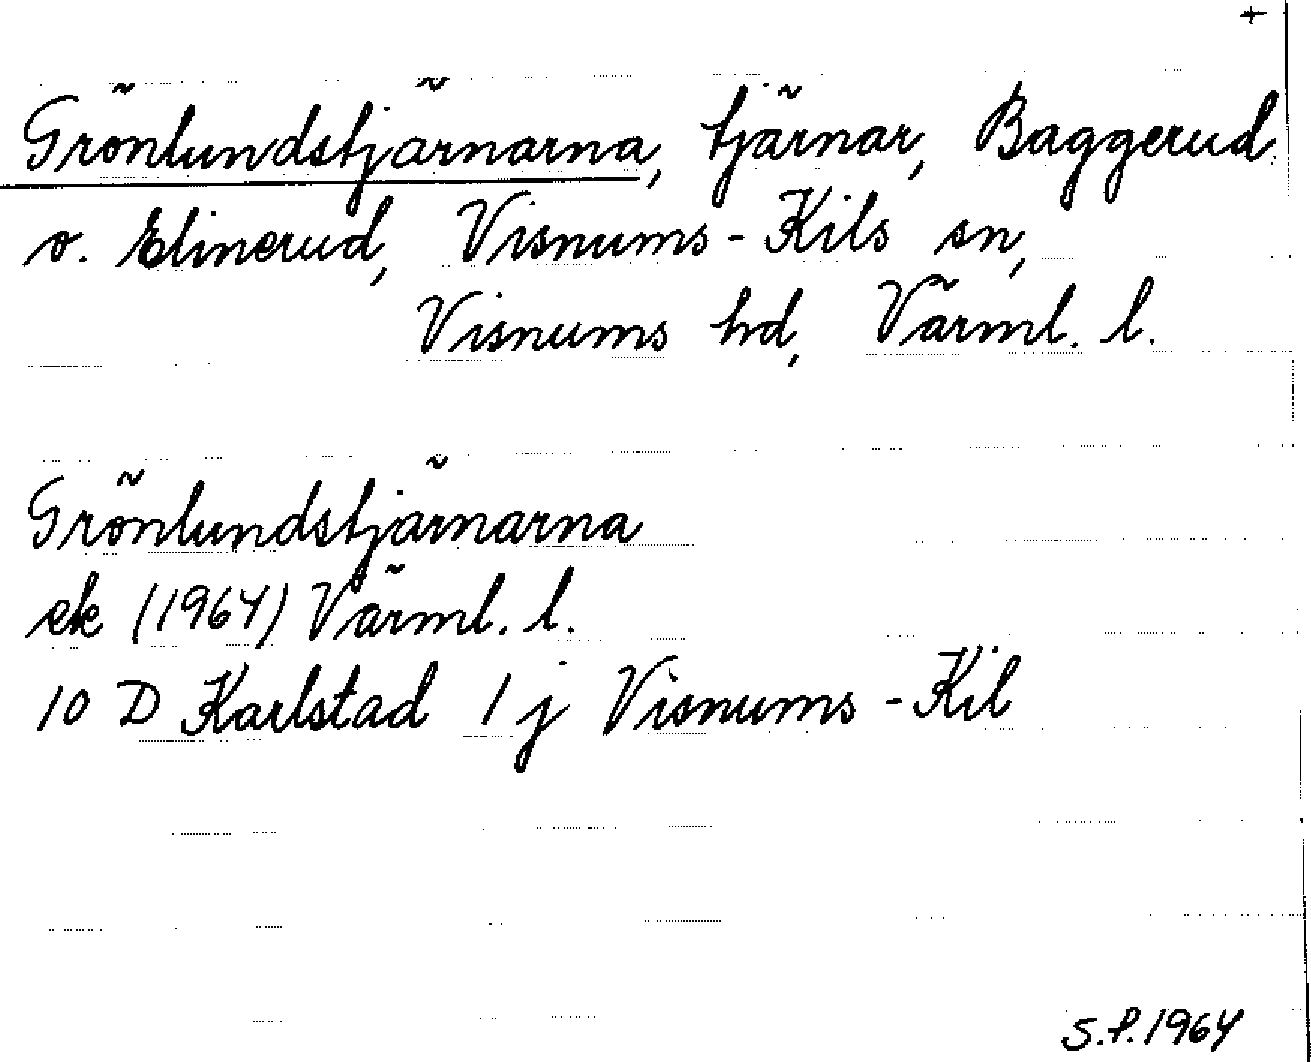 +
Grönlundstjärnarna, tjärnar, Baggerud
o. Elinerud, Visnums-Kils sn,
Visnums hd, Värml. l.
Grönlundstjärnarna
ek (1964) Värml. l.
10 D Karlstad 1 j Visnums-Kil
S.P. 1964